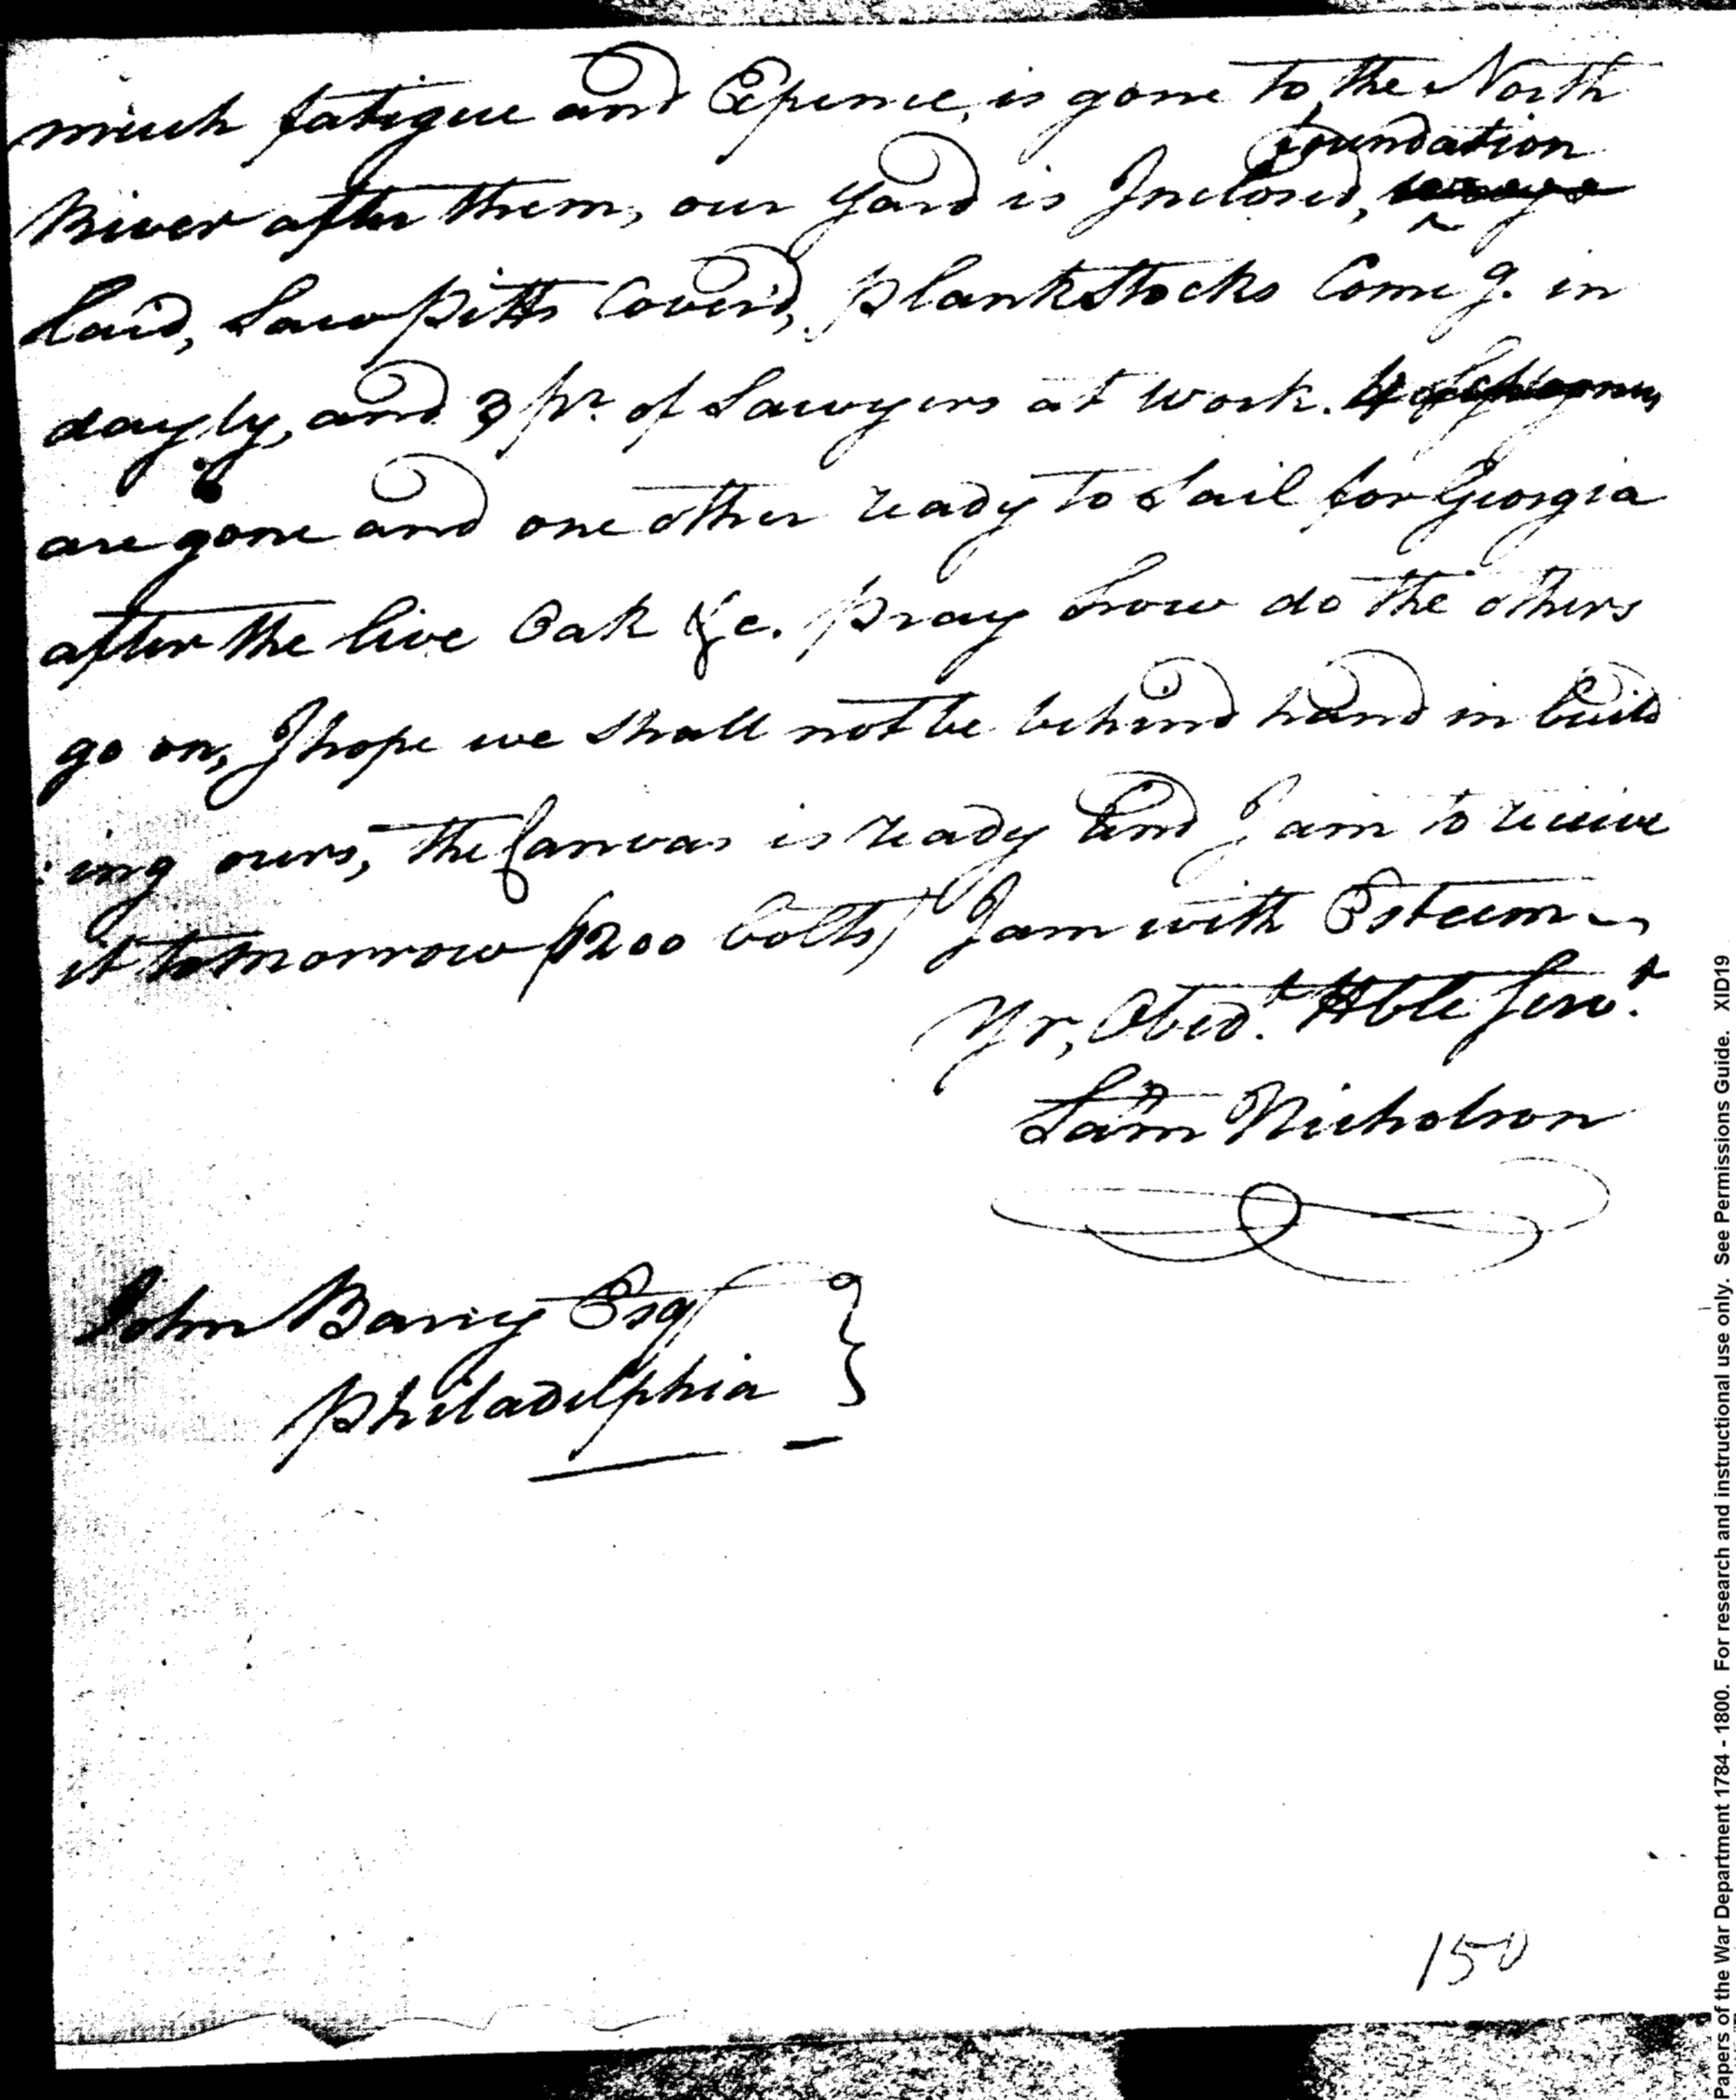 much fatigue and Expence, is gone to the North
foundation
River after them, our Yard is Inclosed,
laid, Saw Pitts Cover'd, plank Stocks Come g. in
dayly, and 3 pr. of Sawyers at work. 4
are gone and one other ready to Sail for Georgia
after the live Oak &c. pray how do the others
go on, I hope we shall not be behind hand in build
:ing ours, the Canvas is ready and I am to receive
it tomorrow (1200 bolts) I am with Esteem
Yr, Obedt. Hble Servt.
Sam Nicholson
John Barry Esqr
Philadelphia
150
Papers of the War Department 1784 - 1800. For research and instructional use only. See Permissions Guide. XID19